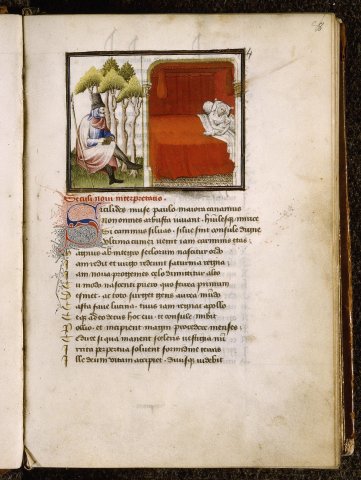 Seculi novi interpretatio.
Sicelides muse paulo maiora canamus
Non omnes arbusta iuvant humilesq; mirice
Si canimus silvas silve sint consule digne
Ultima cumei venit iam carminis etas
Magnus ab integro seclorum nascitur ordo
Iam redit et virgo redeunt saturnia regna
Iam nova progenies celo dimittitur alto
Tu modo nascenti puero quo ferrea primum
Desinet ac toto surget gens aurea mundo
Casta fave lucina tuus iam regnat apollo
Teq; adeo decus hoc evi te consule inibit
Pollio et incipient magni procedere menses
Te duce si qua manent sceleris vestigia nri
Irrita perpetua solvent formidine terras
Ille deum vitam accipiet divisq; videbit